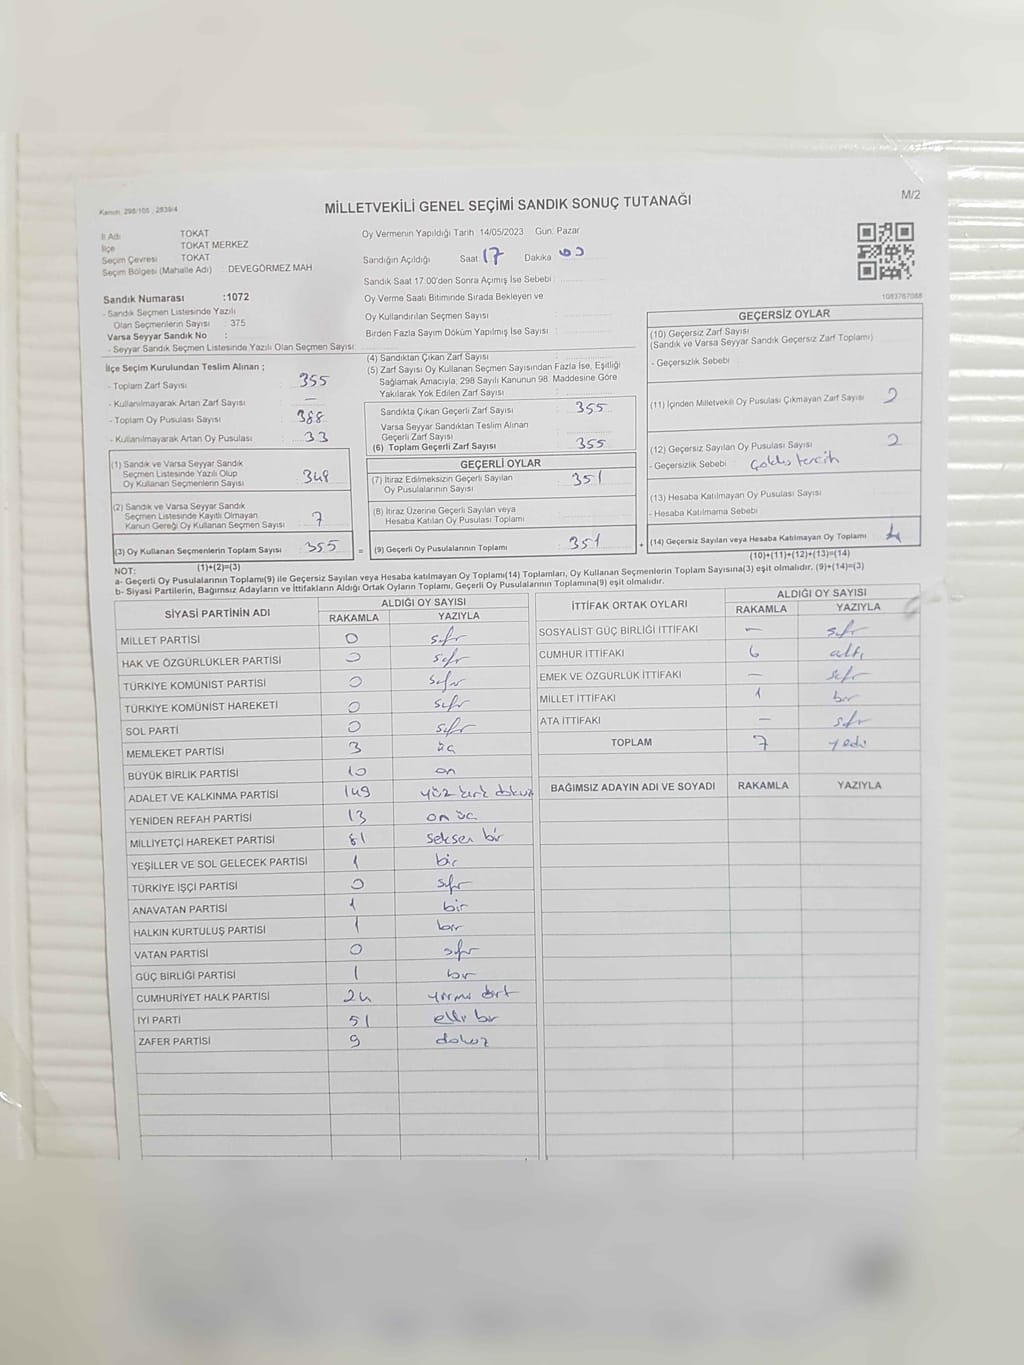 Kanun: 298/105 , 2839/4
MİLLETVEKİLİ GENEL SEÇİMİ SANDIK SONUÇ TUTANAĞI
M/2
İl Adı TOKAT
İlçe TOKAT MERKEZ
Seçim Çevresi TOKAT
Seçim Bölgesi (Mahalle Adı) : DEVEGÖRMEZ MAH
Sandık Numarası :1072
- Sandık Seçmen Listesinde Yazılı
Olan Seçmenlerin Sayısı : 375
Varsa Seyyar Sandık No :
- Seyyar Sandık Seçmen Listesinde Yazılı Olan Seçmen Sayısı:
Oy Vermenin Yapıldığı Tarih 14/05/2023 Gün: Pazar
Sandığın Açıldığı Saat 17 Dakika 00
Sandık Saat 17:00'den Sonra Açılmış İse Sebebi :
Oy Verme Saati Bitiminde Sırada Bekleyen ve
Oy Kullandırılan Seçmen Sayısı :
Birden Fazla Sayım Döküm Yapılmış İse Sayısı :
1083767088
İlçe Seçim Kurulundan Teslim Alınan ;
- Toplam Zarf Sayısı : 355
- Kullanılmayarak Artan Zarf Sayısı : —
- Toplam Oy Pusulası Sayısı : 388
- Kullanılmayarak Artan Oy Pusulası : 33
(1) Sandık ve Varsa Seyyar Sandık
Seçmen Listesinde Yazılı Olup
Oy Kullanan Seçmenlerin Sayısı : 348
(2) Sandık ve Varsa Seyyar Sandık
Seçmen Listesinde Kayıtlı Olmayan
Kanun Gereği Oy Kullanan Seçmen Sayısı : 7
(3) Oy Kullanan Seçmenlerin Toplam Sayısı : 355
(1)+(2)=(3)
(4) Sandıktan Çıkan Zarf Sayısı :
(5) Zarf Sayısı Oy Kullanan Seçmen Sayısından Fazla İse, Eşitliği
Sağlamak Amacıyla; 298 Sayılı Kanunun 98. Maddesine Göre
Yakılarak Yok Edilen Zarf Sayısı :
Sandıkta Çıkan Geçerli Zarf Sayısı : 355
Varsa Seyyar Sandıktan Teslim Alınan
Geçerli Zarf Sayısı :
(6) Toplam Geçerli Zarf Sayısı : 355
GEÇERLİ OYLAR
(7) İtiraz Edilmeksizin Geçerli Sayılan
Oy Pusulalarının Sayısı : 351
(8) İtiraz Üzerine Geçerli Sayılan veya
Hesaba Katılan Oy Pusulası Toplamı :
= (9) Geçerli Oy Pusulalarının Toplamı : 351 +
GEÇERSİZ OYLAR
(10) Geçersiz Zarf Sayısı
(Sandık ve Varsa Seyyar Sandık Geçersiz Zarf Toplamı)
- Geçersizlik Sebebi :
(11) İçinden Milletvekili Oy Pusulası Çıkmayan Zarf Sayısı : 2
(12) Geçersiz Sayılan Oy Pusulası Sayısı : 2
- Geçersizlik Sebebi : Çoklu tercih
(13) Hesaba Katılmayan Oy Pusulası Sayısı :
- Hesaba Katılmama Sebebi :
(14) Geçersiz Sayılan veya Hesaba Katılmayan Oy Toplamı : 4
(10)+(11)+(12)+(13)=(14)
NOT:
a- Geçerli Oy Pusulalarının Toplamı(9) ile Geçersiz Sayılan veya Hesaba katılmayan Oy Toplamı(14) Toplamları, Oy Kullanan Seçmenlerin Toplam Sayısına(3) eşit olmalıdır. (9)+(14)=(3)
b- Siyasi Partilerin, Bağımsız Adayların ve İttifakların Aldığı Ortak Oyların Toplamı, Geçerli Oy Pusulalarının Toplamına(9) eşit olmalıdır.
SİYASİ PARTİNİN ADI ALDIĞI OY SAYISI
RAKAMLA YAZIYLA
MİLLET PARTİSİ 0 sıfır
HAK VE ÖZGÜRLÜKLER PARTİSİ 0 sıfır
TÜRKİYE KOMÜNİST PARTİSİ 0 sıfır
TÜRKİYE KOMÜNİST HAREKETİ 0 sıfır
SOL PARTİ 0 sıfır
MEMLEKET PARTİSİ 3 üç
BÜYÜK BİRLİK PARTİSİ 10 on
ADALET VE KALKINMA PARTİSİ 149 yüz kırk dokuz
YENİDEN REFAH PARTİSİ 13 on üç
MİLLİYETÇİ HAREKET PARTİSİ 81 seksen bir
YEŞİLLER VE SOL GELECEK PARTİSİ 1 bir
TÜRKİYE İŞÇİ PARTİSİ 0 sıfır
ANAVATAN PARTİSİ 1 bir
HALKIN KURTULUŞ PARTİSİ 1 bir
VATAN PARTİSİ 0 sıfır
GÜÇ BİRLİĞİ PARTİSİ 1 bir
CUMHURİYET HALK PARTİSİ 24 yirmi dört
İYİ PARTİ 51 elli bir
ZAFER PARTİSİ 9 dokuz
İTTİFAK ORTAK OYLARI ALDIĞI OY SAYISI
RAKAMLA YAZIYLA
SOSYALİST GÜÇ BİRLİĞİ İTTİFAKI — sıfır
CUMHUR İTTİFAKI 6 altı
EMEK VE ÖZGÜRLÜK İTTİFAKI — sıfır
MİLLET İTTİFAKI 1 bir
ATA İTTİFAKI — sıfır
TOPLAM 7 yedi
BAĞIMSIZ ADAYIN ADI VE SOYADI RAKAMLA YAZIYLA